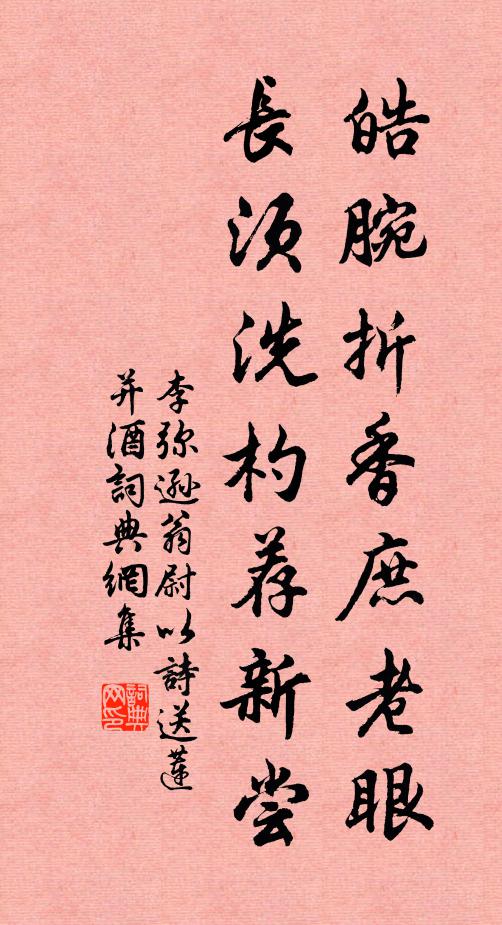 皓腕折香庶老眼
長須洗杓荐新尝
李弥遜翁尉以詩送蓮
并酒詞典網集
詞典网印